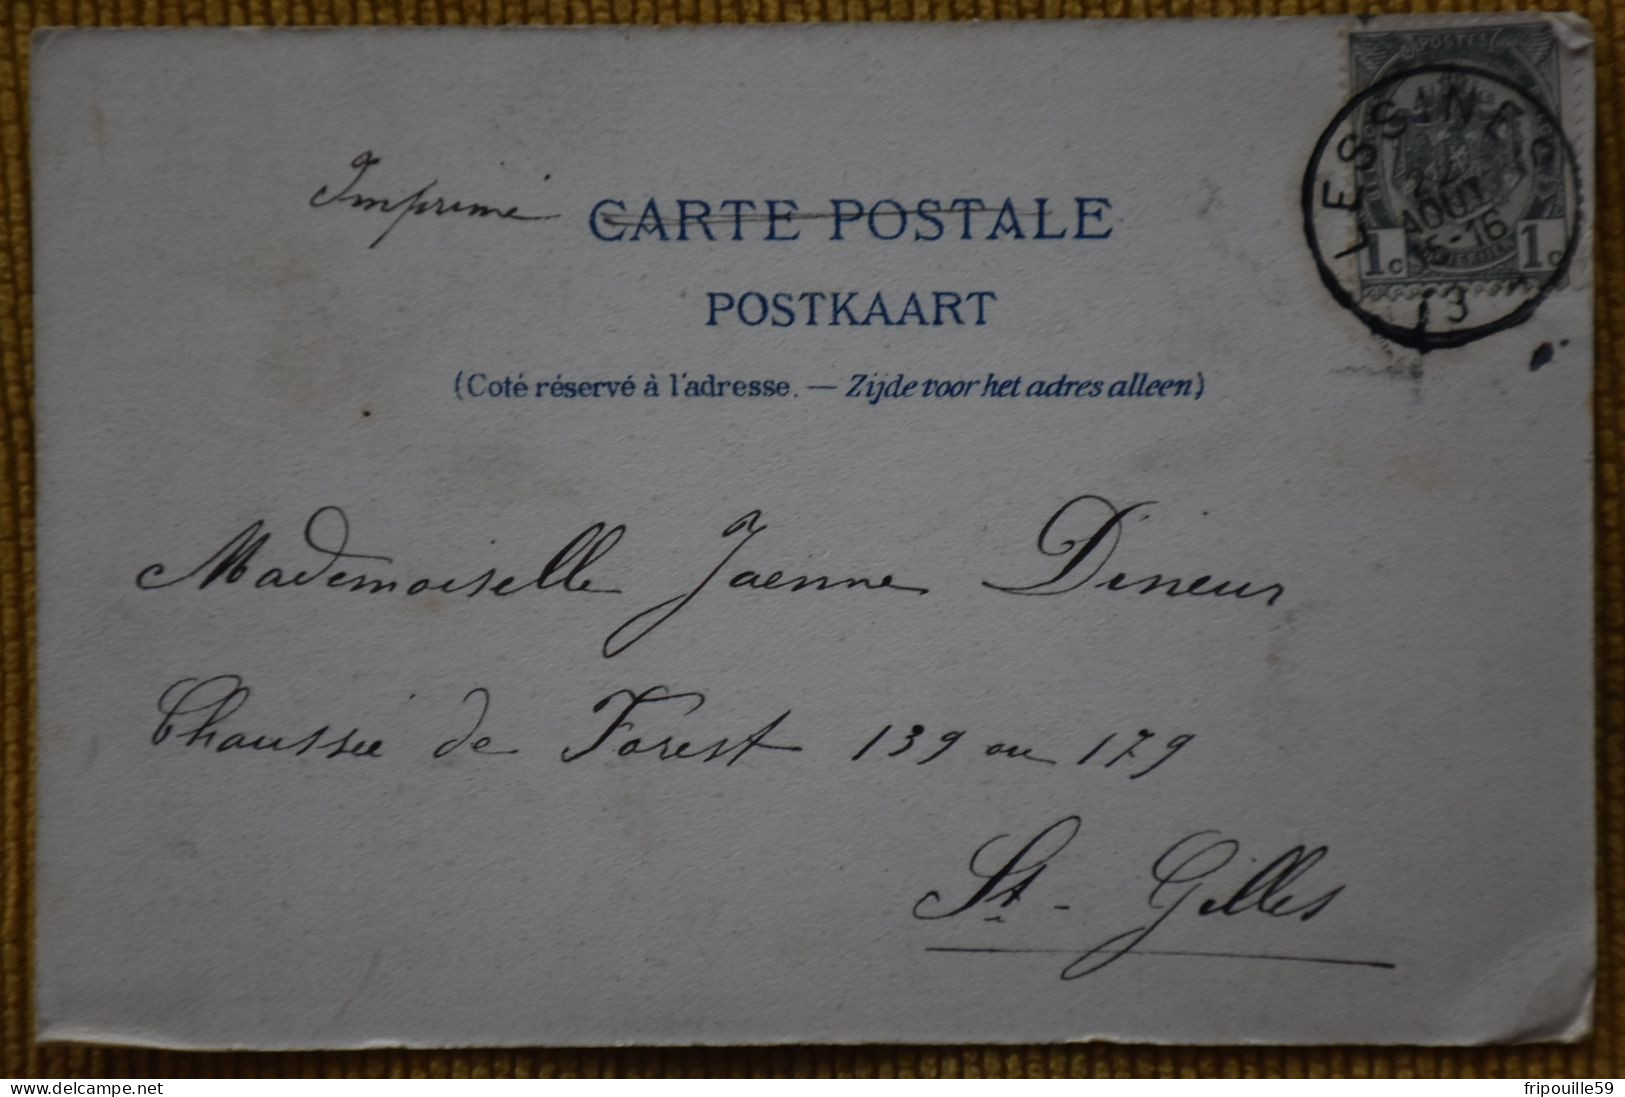 POSTES
LESSINES
22
AOUT
5-16
1c 1c
3
Imprimé
CARTE POSTALE
POSTKAART
(Coté réservé à l'adresse. — Zijde voor het adres alleen)
Mademoiselle Jaenne Dineur
Chaussée de Forest 139 ou 179
St - Gilles
delcampe.net
fripouille59